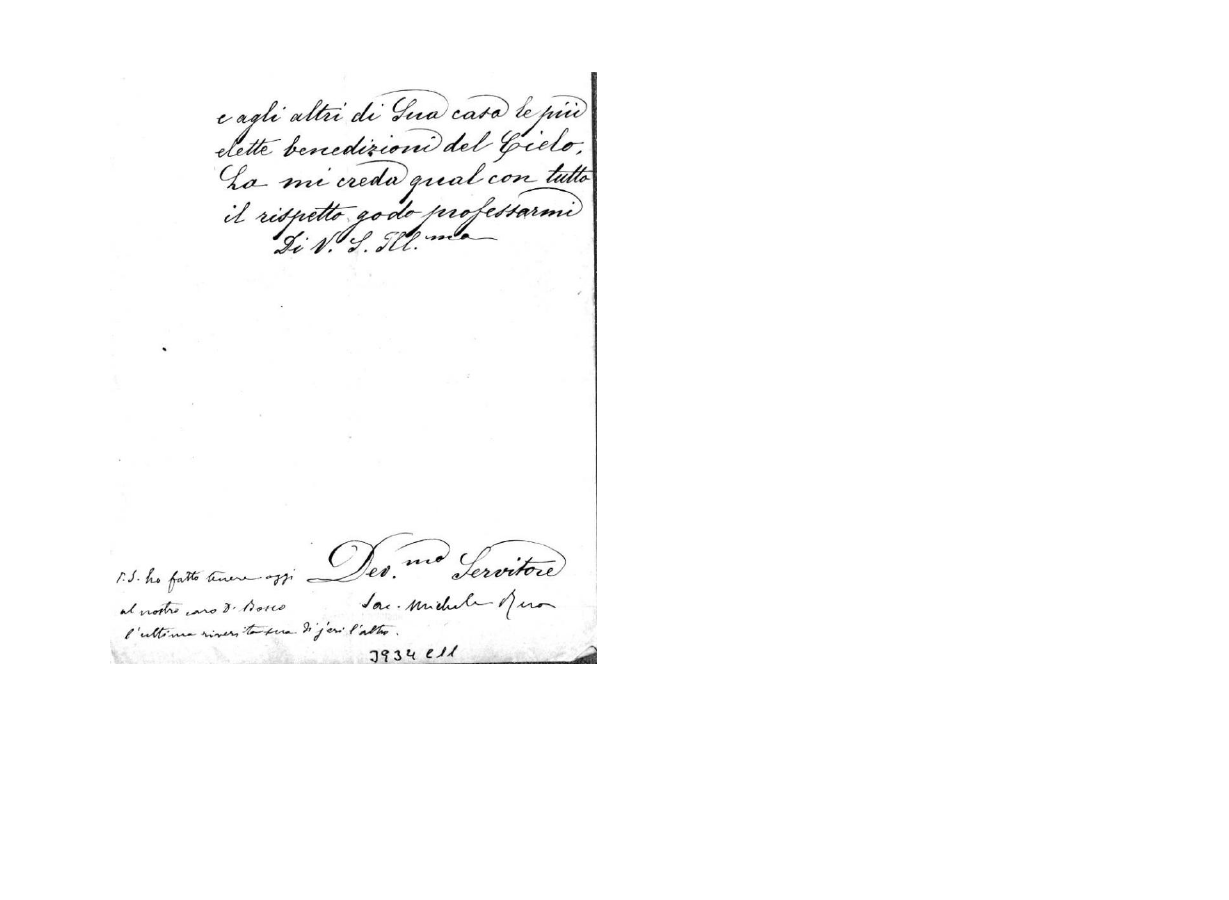 e agli altri di Sua casa le più
elette benedizioni del Cielo.
La mi creda qual con tutto
il rispetto godo professarmi
Di V. S. Ill.ma
Dev.mo Servitore
Sac. Michele Rua
P.S. ho fatto tenere oggi
al nostro caro D. Bosco
l'ultima riverita sua di jeri l'altro.
3934 E11